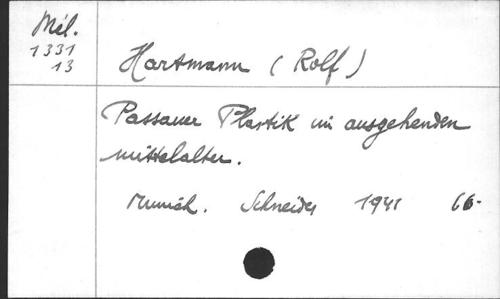 Mél.
1331
13
Hartmann (Rolf)
Passauer Plastik im ausgehenden
Mittelalter.
Munich. Schneider 1941 66-